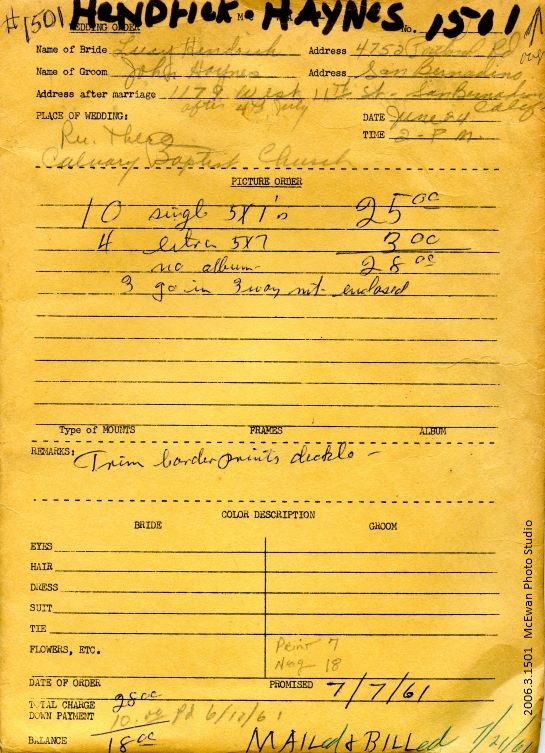 #1501 HENDRICK - HAYNES. No. 1501
WEDDING ORDER
Name of Bride Lucy Hendrick Address 4752 Portland Rd
Name of Groom John Haynes Address San Bernadino,
Address after marriage 1179 West 11th St - San Bernadino
after 4th July Calif
PLACE OF WEDDING: DATE June 24
TIME 2 - P.M.
Calvary Baptist Church
PICTURE ORDER
10 single 5X7's 25 00
4 extra 5X7 3 00
no album - 28 00
3 go in 3 way mt. enclosed
Type of MOUNTS FRAMES ALBUM
REMARKS: Trim border prints deckle -
COLOR DESCRIPTION
BRIDE GROOM
EYES
HAIR
DRESS
SUIT
TIE
FLOWERS, ETC. Print 7
Neg 18
DATE OF ORDER PROMISED 7/7/61
TOTAL CHARGE 28 00
DOWN PAYMENT 10.00 Pd 6/10/61
BALANCE 18 00 MAILed & BILLed 7/21/61
2006.3.1501 McEwan Photo Studio